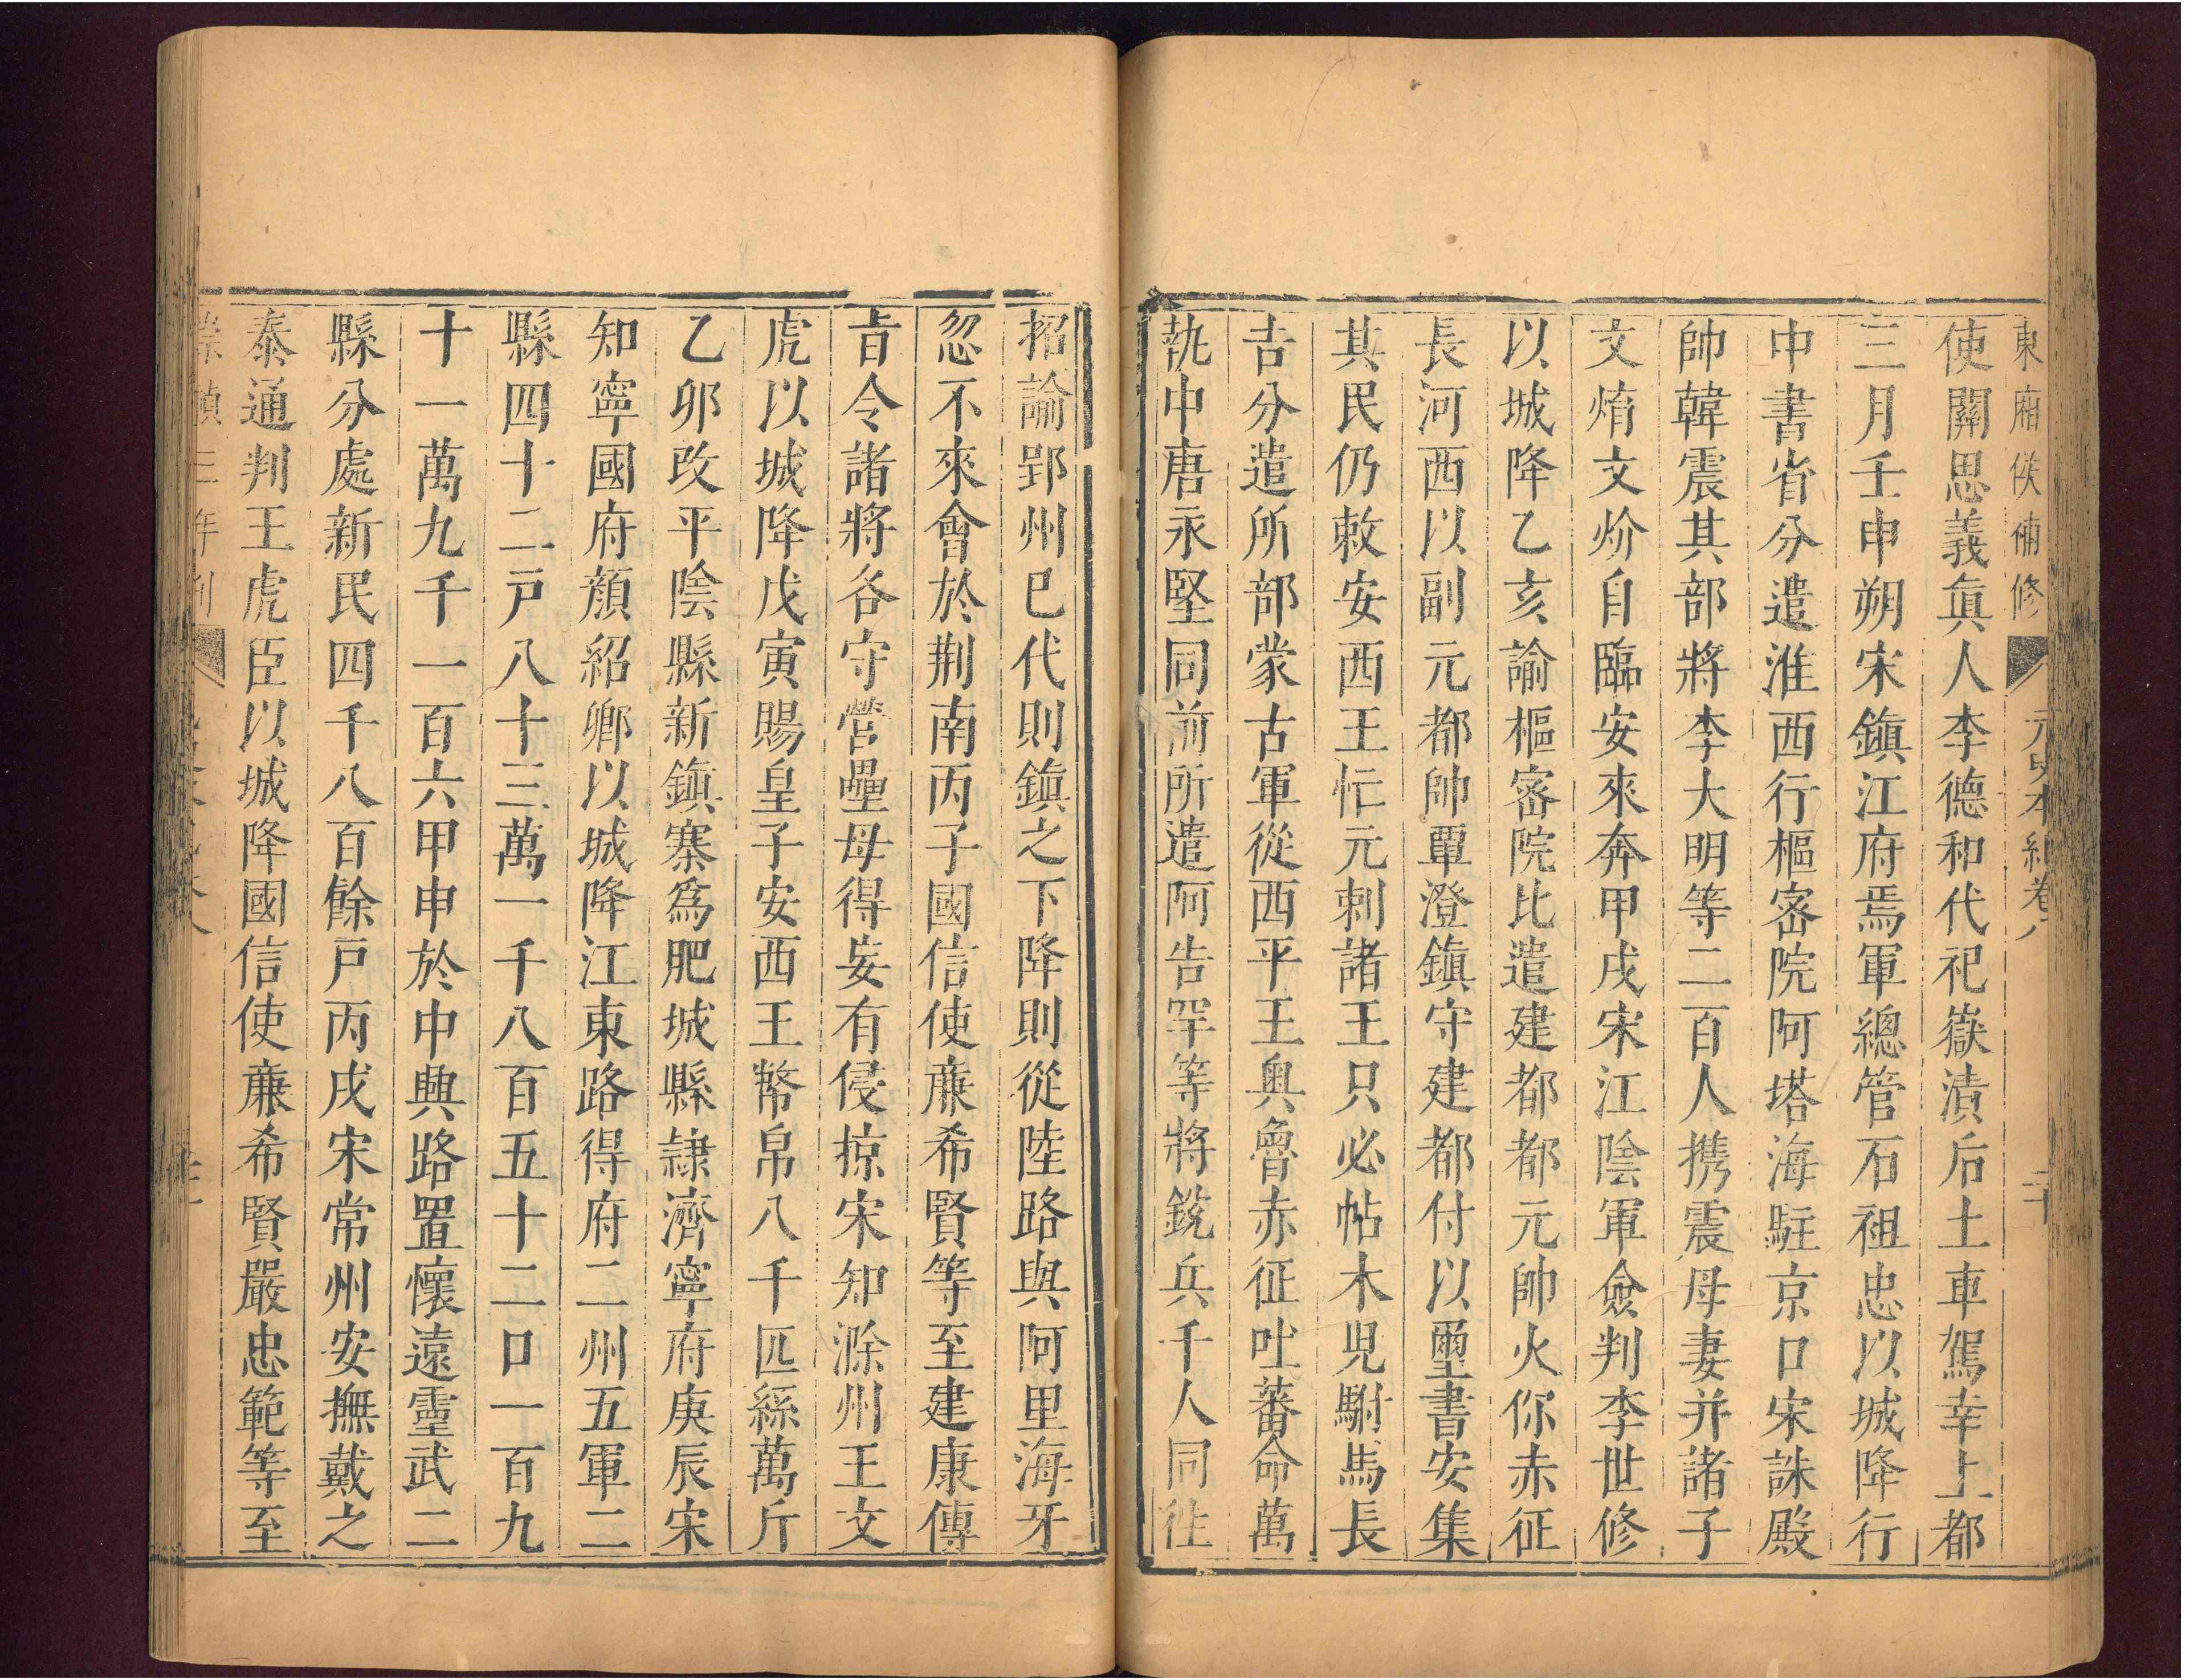 東廂侯補修 元史本紀卷八 二十
使關思義眞人李德和代祀嶽瀆后土車駕幸上都
三月壬申朔宋鎭江府馬軍總管石祖忠以城降行
中書省分遣淮西行樞密院阿塔海駐京口宋誅殿
帥韓震其部將李大明等二百人携震母妻并諸子
文焴文炌自臨安來奔甲戌宋江陰軍僉判李世修
以城降乙亥諭樞密院比遣建都都元帥火你赤征
長河西以副元都帥覃澄鎭守建都付以璽書安集
其民仍敕安西王忙元剌諸王只必帖木兒駙馬長
吉分遣所部蒙古軍從西平王奥魯赤征吐蕃命萬
執中唐永堅同前所遣阿告罕等將銳兵千人同往
招諭郢州巳代則鎭之下降則從陸路與阿里海牙
忽不來會於荆南丙子國信使亷希賢等至建康傳
旨令諸將各守營壘毋得妄有侵掠宋知滁州王文
虎以城降戊寅賜皇子安西王幣帛八千匹絲萬斤
乙卯改平陰縣新鎭寨爲肥城縣隷濟寧府庚辰宋
知寧國府顔紹卿以城降江東路得府二州五軍二
縣四十二戸八十三萬一千八百五十二口一百九
十一萬九千一百六甲申於中興路置懷遠靈武二
縣分處新民四千八百餘戸丙戌宋常州安撫戴之
泰通判王虎臣以城降國信使亷希賢嚴忠範等至
三年刊